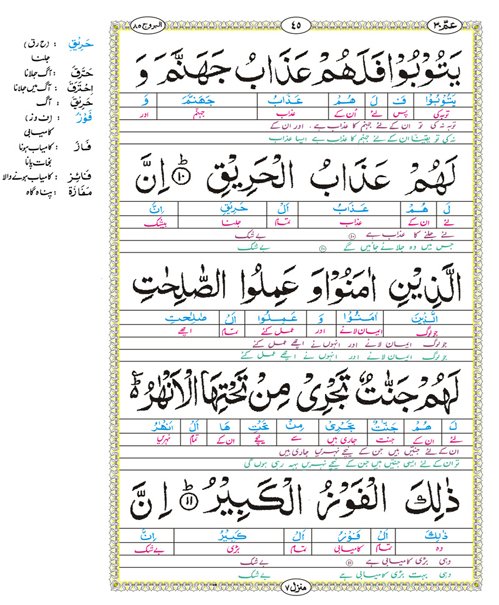 عمّ ۳۰
۴۵
البروج ۸۵
يَتُوْبُوْا فَلَهُمْ عَذَابُ جَهَنَّمَ وَ
يَتُوْبُوْا فَ لَ هُمْ عَذَابُ جَهَنَّمَ وَ
توبہ کی پس لئے اُن کے عذاب جہنم اور
توبہ نہ کی تو ان کے لئے جہنم کا عذاب ہے ، اور ان کے
نہ کی تو یقیناً ان کے لئے جہنم کا عذاب ہے ایسا عذاب
لَهُمْ عَذَابُ الْحَرِيْقِ ۱۰ اِنَّ
لَ هُمْ عَذَابُ اَلْ حَرِيْقِ اِنَّ
لئے ان کے عذاب تمام جلنا بیشک
لئے جلنے کا عذاب ہے ۱۰ بے شک
جس میں وہ جلائے جائیں گے ۱۰ بے شک
الَّذِيْنَ اٰمَنُوْا وَ عَمِلُوا الصّٰلِحٰتِ
الَّذِيْنَ اٰمَنُوْا وَ عَمِلُوْا اَلْ صٰلِحٰتِ
جو لوگ ایمان لائے اور عمل کئے تمام اچھے
جو لوگ ایمان لائے اور انہوں نے اچھے عمل کئے
جو لوگ ایمان لائے اور انہوں نے اچھے عمل کئے
لَهُمْ جَنّٰتٌ تَجْرِيْ مِنْ تَحْتِهَا الْاَنْهٰرُ
لَ هُمْ جَنّٰتٌ تَجْرِيْ مِنْ تَحْتِ هَا اَلْ اَنْهٰرُ
لئے ان کے جنت جاری ہیں سے نیچے ان کے تمام نہریں
ان کے لئے جنتیں ہیں جن کے نیچے نہریں جاری ہیں
تو ان کے لئے ایسی جنتیں ہیں جن کے نیچے نہریں بہہ رہی ہوں گی
ذٰلِكَ الْفَوْزُ الْكَبِيْرُ ۱۱ اِنَّ
ذٰلِكَ اَلْ فَوْزُ اَلْ كَبِيْرُ اِنَّ
وہ تمام کامیابی تمام بڑی بے شک
وہی بڑی کامیابی ہے ۱۱ بے شک
وہی بہت بڑی کامیابی ہے بے شک
منزل ۷
حَرِيْقِ : (ح ر ق)
جلنا
حَرَّقَ : آگ جلانا
اِحْتَرَقَ : آگ میں جلانا
حَرِيْقٌ : آگ
فَوْزٌ : (ف و ز)
کامیابی
فَازَ : کامیاب ہونا
نجات پانا
فَائِزٌ : کامیاب ہونے والا
مَفَازَة : پناہ گاہ